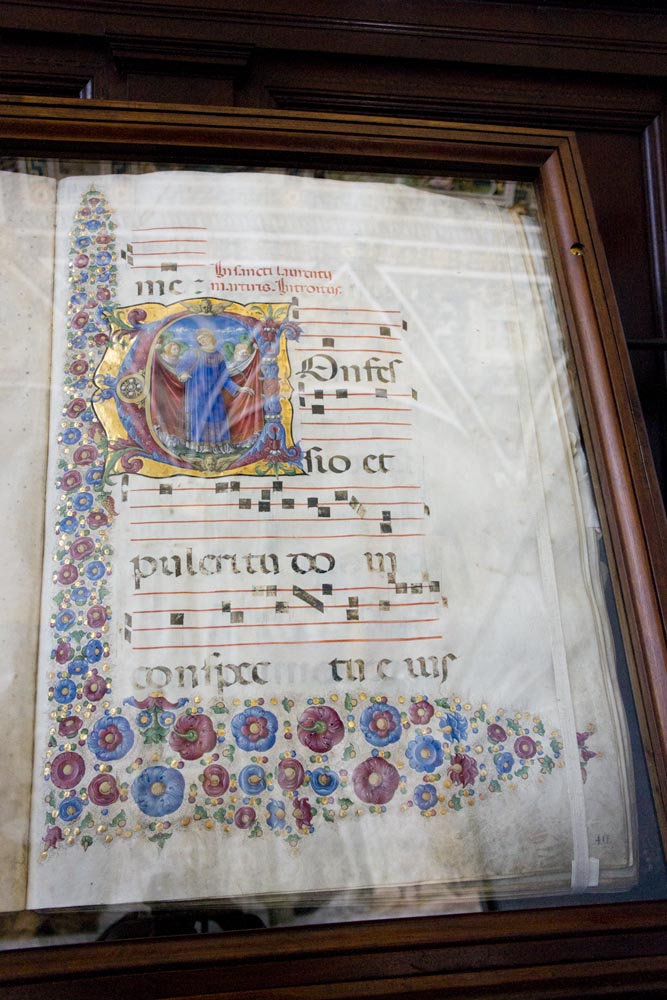 In sancti laurentij
me : martiris. Introitus.
COnfes
sio et
pulcritu do in
conspec tu e ius
40